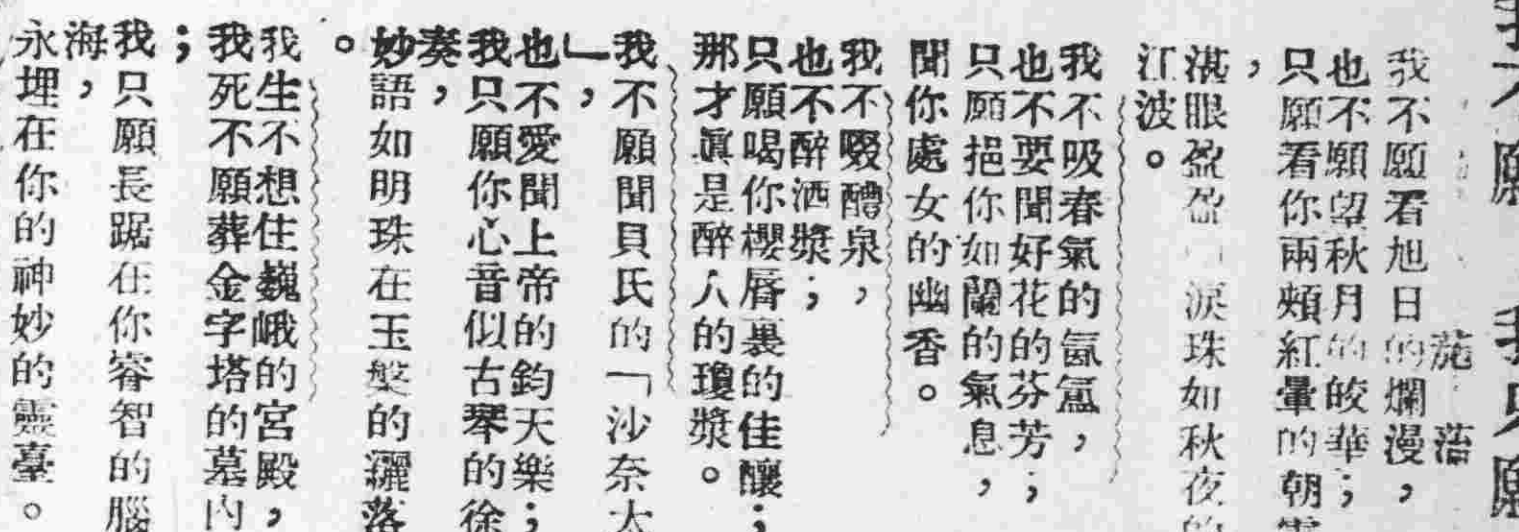 我不願 我只願
施蒞
我不願看旭日的爛漫，
也不願望秋月的皎華；
只願看你兩頰紅暈的朝
，
湛眼盈盈 淚珠如秋夜的
江波。
我不吸春氣的氤氳，
也不要聞好花的芬芳；
只願挹你如蘭的氣息，
聞你處女的幽香。
我不啜醴泉，
也不醉酒漿；
只願喝你櫻唇裏的佳釀；
那才眞是醉人的瓊漿。
我不願聞貝氏的「沙奈大
」，
也不愛聞上帝的鈞天樂；
我只願你心音似古琴的徐
奏，
妙語如明珠在玉盤的灑落
。
我生不想住巍峨的宮殿，
我死不願葬金字塔的墓內
；
我只願長踞在你睿智的腦
海，
永埋在你的神妙的靈臺。